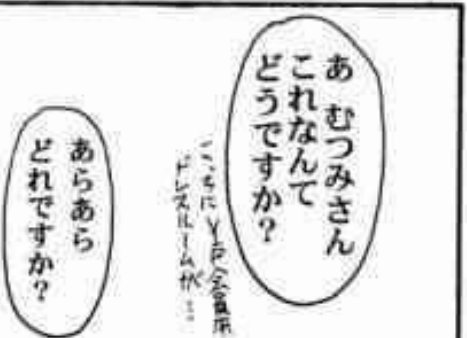 あ むつみさん
これなんて
どうですか?
こっちにV戸会員用
ドレスルームが…
あらあら
どれですか?